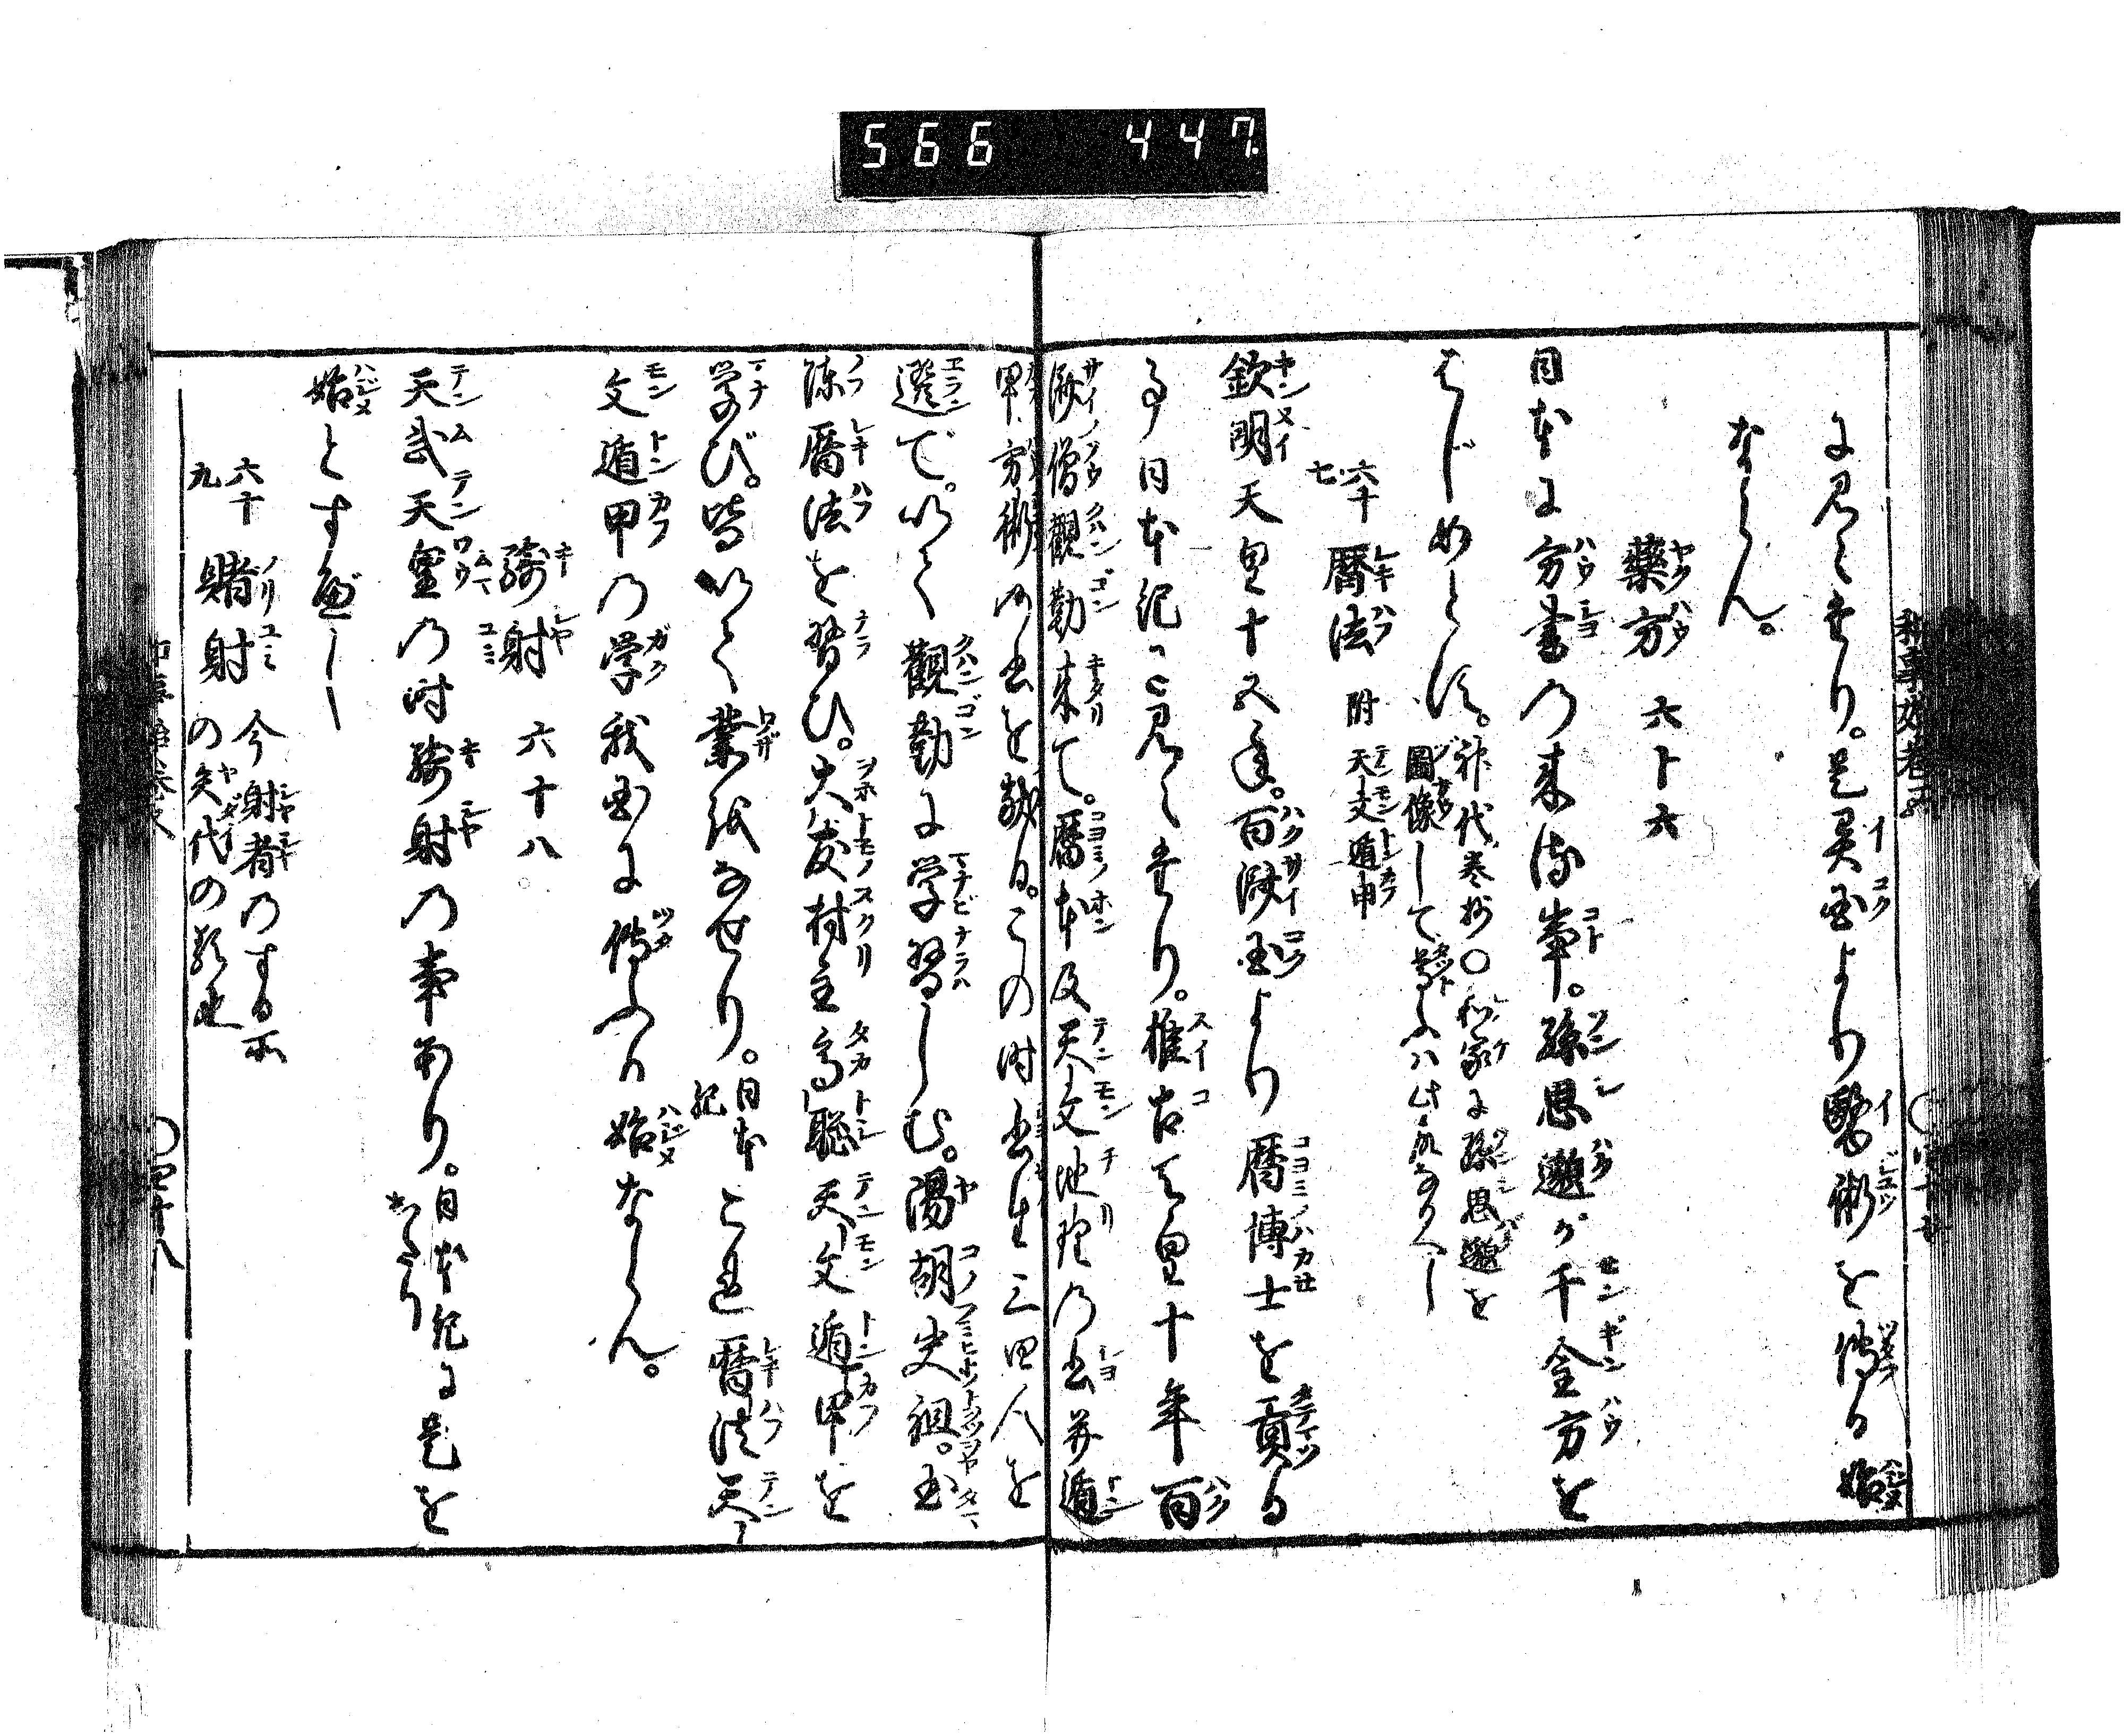 566 447
に見えたり。是異国より醫術を傳る始
ならん。
藥方 六十六
日本に方書の来る事。孫思邈が千金方を
はじめとす。神代巻抄〇和家に孫思邈を
圖像して
六十七 暦法 附 天文遁甲
欽明天皇十五年。百済国より暦博士を貢る
事日本紀に見えたり。推古天皇十年百
済僧觀勒来て。暦本及天文地理の書并遁
甲方術の書を献る。この時書生三四人を
選で。以て觀勒に学習しむ。陽胡史祖。玉
陳暦法を習ひ。大友村主高聡天文遁甲を
学び。皆以て業を成せり。日本紀これ暦法天
文遁甲の学我国に傳ふる始ならん。
騎射 六十八
天武天皇の時騎射の事あり。日本紀に是を
始とすべし
六十九 賭射 今射者のする所
の矢代の類也
和事始巻五 〇四十七
和事始巻五 〇四十八